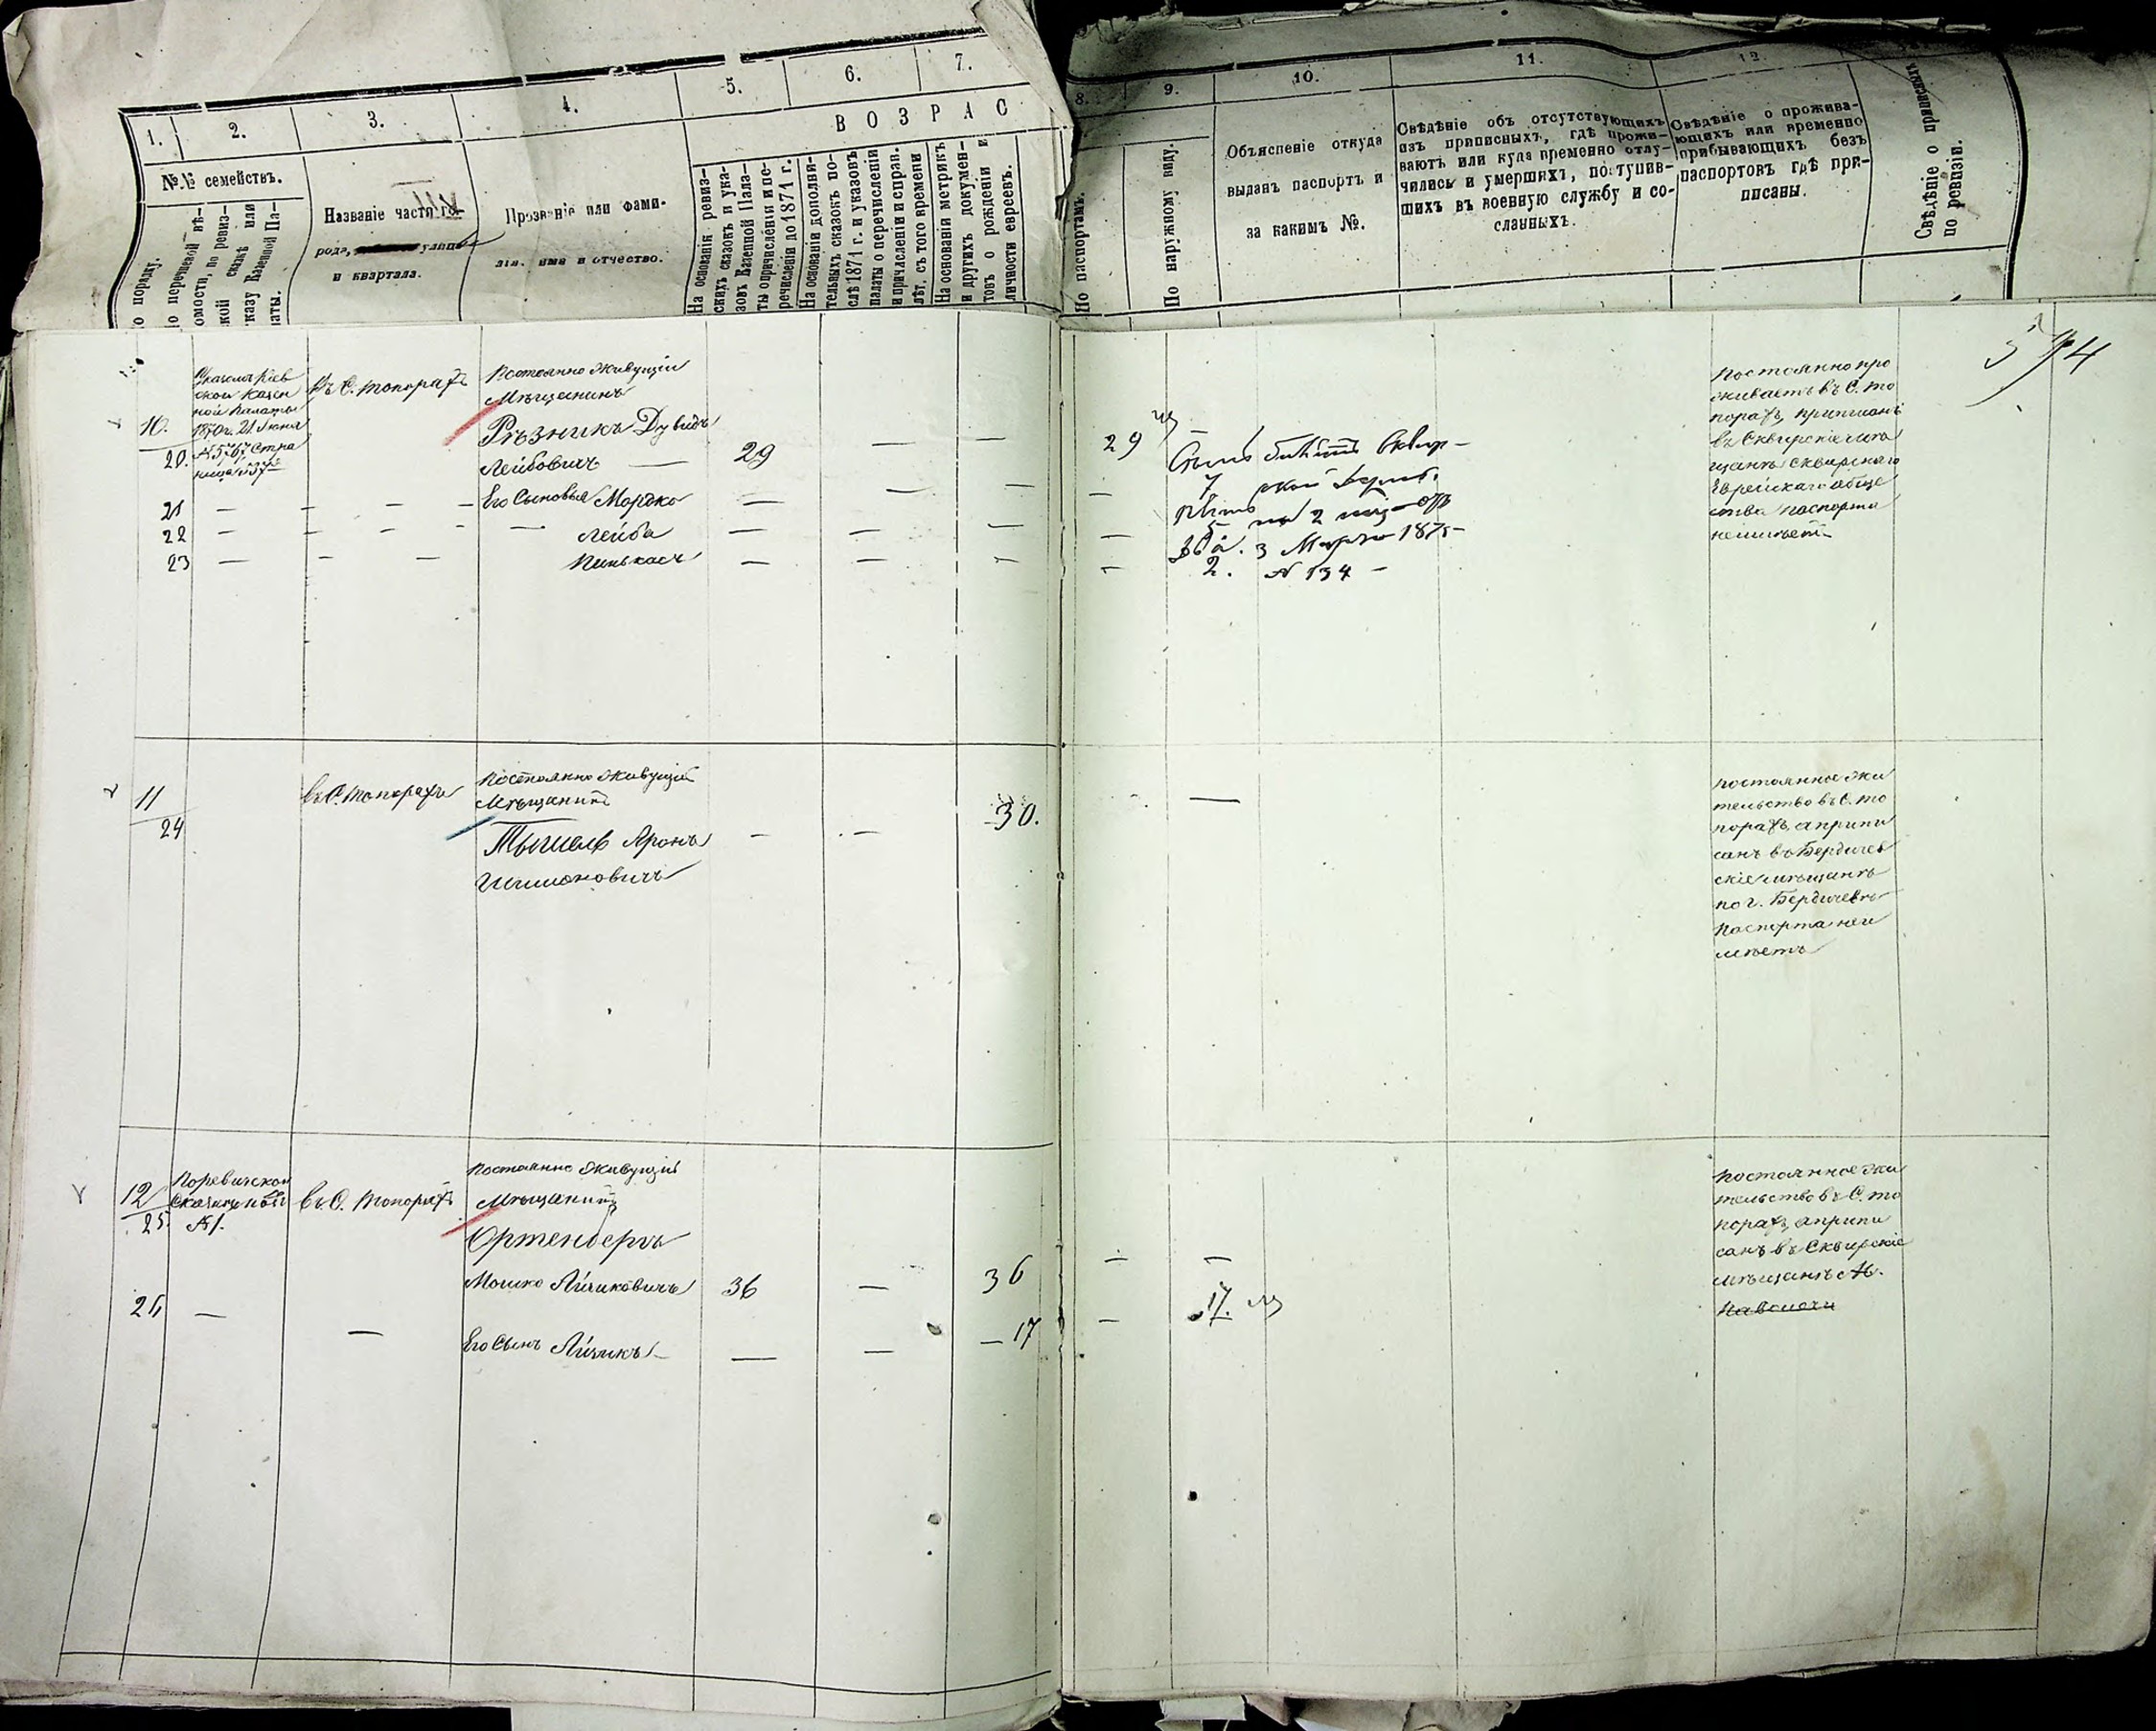 1.
2.
3.
4.
5.
6.
7.
8.
9.
10.
11.
12.
ВОЗРАС
№№ семействъ.
о порядку.
о перечневой вѣ-
омости, по ревиз-
кой сказкѣ или
казу Казенной Па-
латы.
VIII
Названіе части го-
рода, улицы
и квартала.
Прозваніе или фами-
лія, имя и отчество.
На основаніи ревиз-
скихъ сказокъ и ука-
зовъ Казенной Пала-
ты о причисленіи и пе-
речисленіи до 1871 г.
На основаніи дополни-
тельныхъ сказокъ по-
слѣ 1871 г. и указовъ
палаты о перечисленіи
и причисленіи и справ.
лѣт, съ того времени
На основаніи метрикъ
и другихъ докумен-
товъ о рожденіи и
личности евреевъ.
По паспортамъ.
По наружному виду.
Объясненіе откуда
выданъ паспортъ и
за какимъ №.
Свѣдѣніе объ отсутствующихъ
изъ приписныхъ, гдѣ прожи-
ваютъ или куда временно отлу-
чились и умершихъ, поступив-
шихъ въ военную службу и со-
сланныхъ.
Свѣдѣніе о прожива-
ющихъ или временно
прибывающихъ безъ
паспортовъ гдѣ при-
писаны.
Свѣдѣніе о припискѣ
по ревизіи.
10.
20.
Указомъ Кіев
ской Казен
ной Палаты
1870 г. 21 Іюня
№ 5767 Стра
ница 537
Въ С. Топорахъ
Постоянно Живущій
Мѣщанинъ
Рѣзникъ Дувидъ
Лейбовичъ — 29 — —
29
21 — — — Его Сыновья Мошко — — — — 7
22 — — — — Лейба — — — — 5
23 — — — Пинькасъ — — — — 2.
билетъ Сквир-
ской
на 2
3 Марта 1875
№ 134 -
Постоянно про
живаетъ въ С. То
порахъ, приписанъ
въ Сквирскіе мѣ
щане Сквирскаго
Еврейскаго обще
ства паспорта
неимѣетъ
11
24
въ С. Топорахъ
Постоянно Живущій
Мѣщанинъ
Тышель Аронъ
Шимоновичъ
— — 30. —
постоянное жи
тельство въ С. То
порахъ, а припи
санъ въ Бердичев
скіе мѣщане
по г. Бердичеву
Паспорта неи
мѣетъ
12
25.
По ревизской
сказкѣ
№ 1.
въ С. Топорахъ
Постоянно Живущій
Мѣщанинъ
Ортенбергъ
Мошко Айзиковичъ 36 — 36 — —
26 — — Его Сынъ Айзикъ — — — 17 — 17.
постоянное жи
тельство въ С. То
порахъ, а припи
санъ въ Сквирскіе
мѣщане